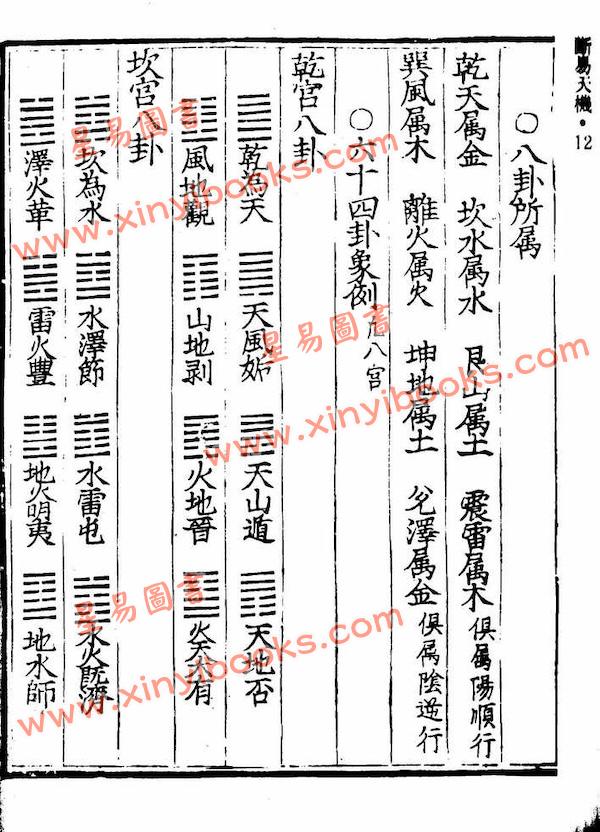 斷易天機・12
○八卦所属
乾天属金 坎水属水 艮山属土 震雷属木 俱属陽順行
巽風属木 離火属火 坤地属土 兌澤属金 俱属陰逆行
○六十四卦象例 八宮
乾宮八卦
乾為天 天風姤 天山遁 天地否
風地觀 山地剥 火地晉 火天大有
坎宮八卦
坎為水 水澤節 水雷屯 水火既濟
澤火革 雷火豐 地火明夷 地水師
星易圖書
www.xinyibooks.com
星易圖書
www.xinyibooks.com
星易圖書
www.xinyibooks.com